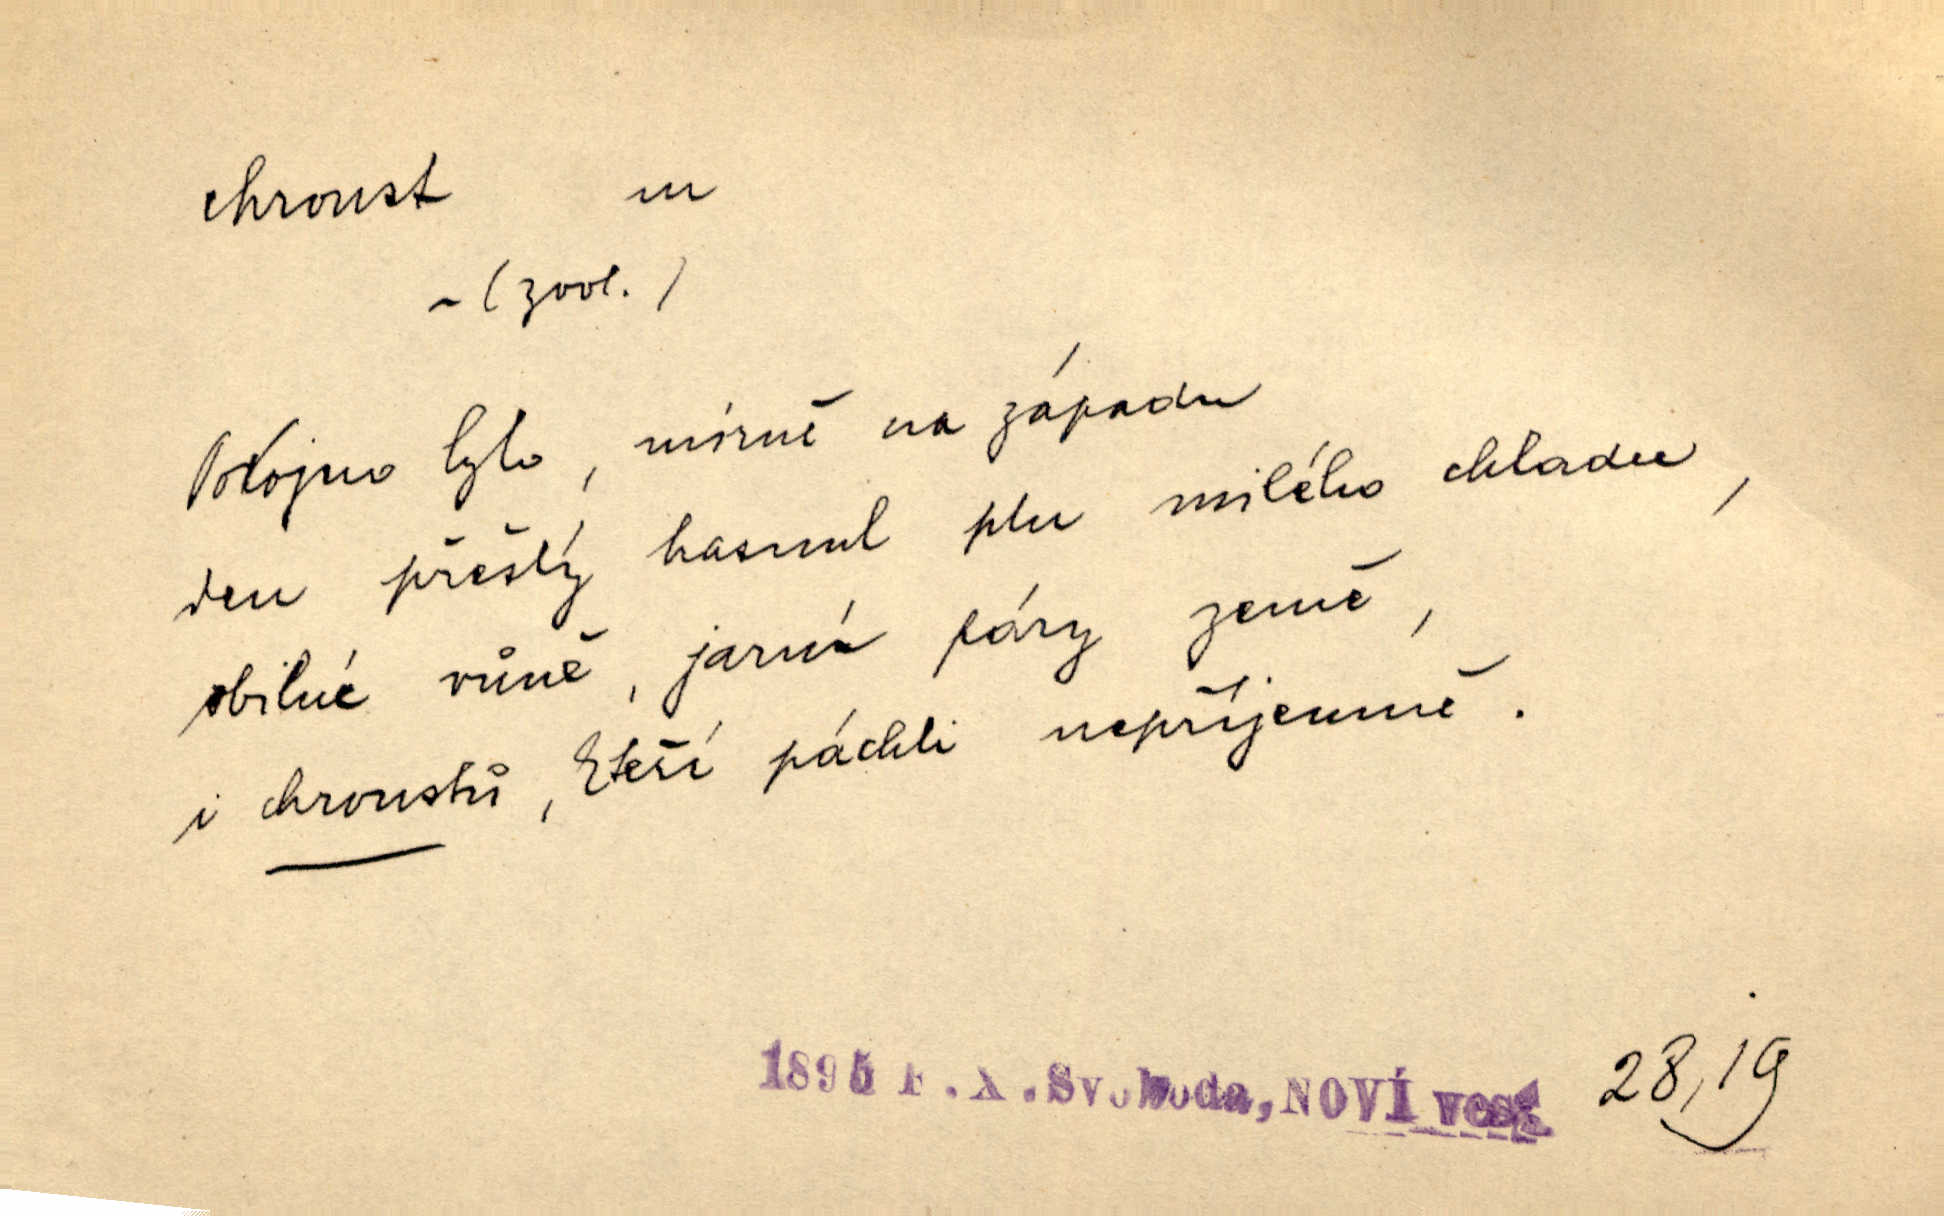 chroust m
~ (zool.)
Pokojno bylo, mírně na západu
den přešlý hasnul pln milého chladu,
obilné vůně, jarní páry země,
i chroustů, kteří páchli nepříjemně.
1895 F. X. Svoboda, NOVÍ vesg. 28, 19